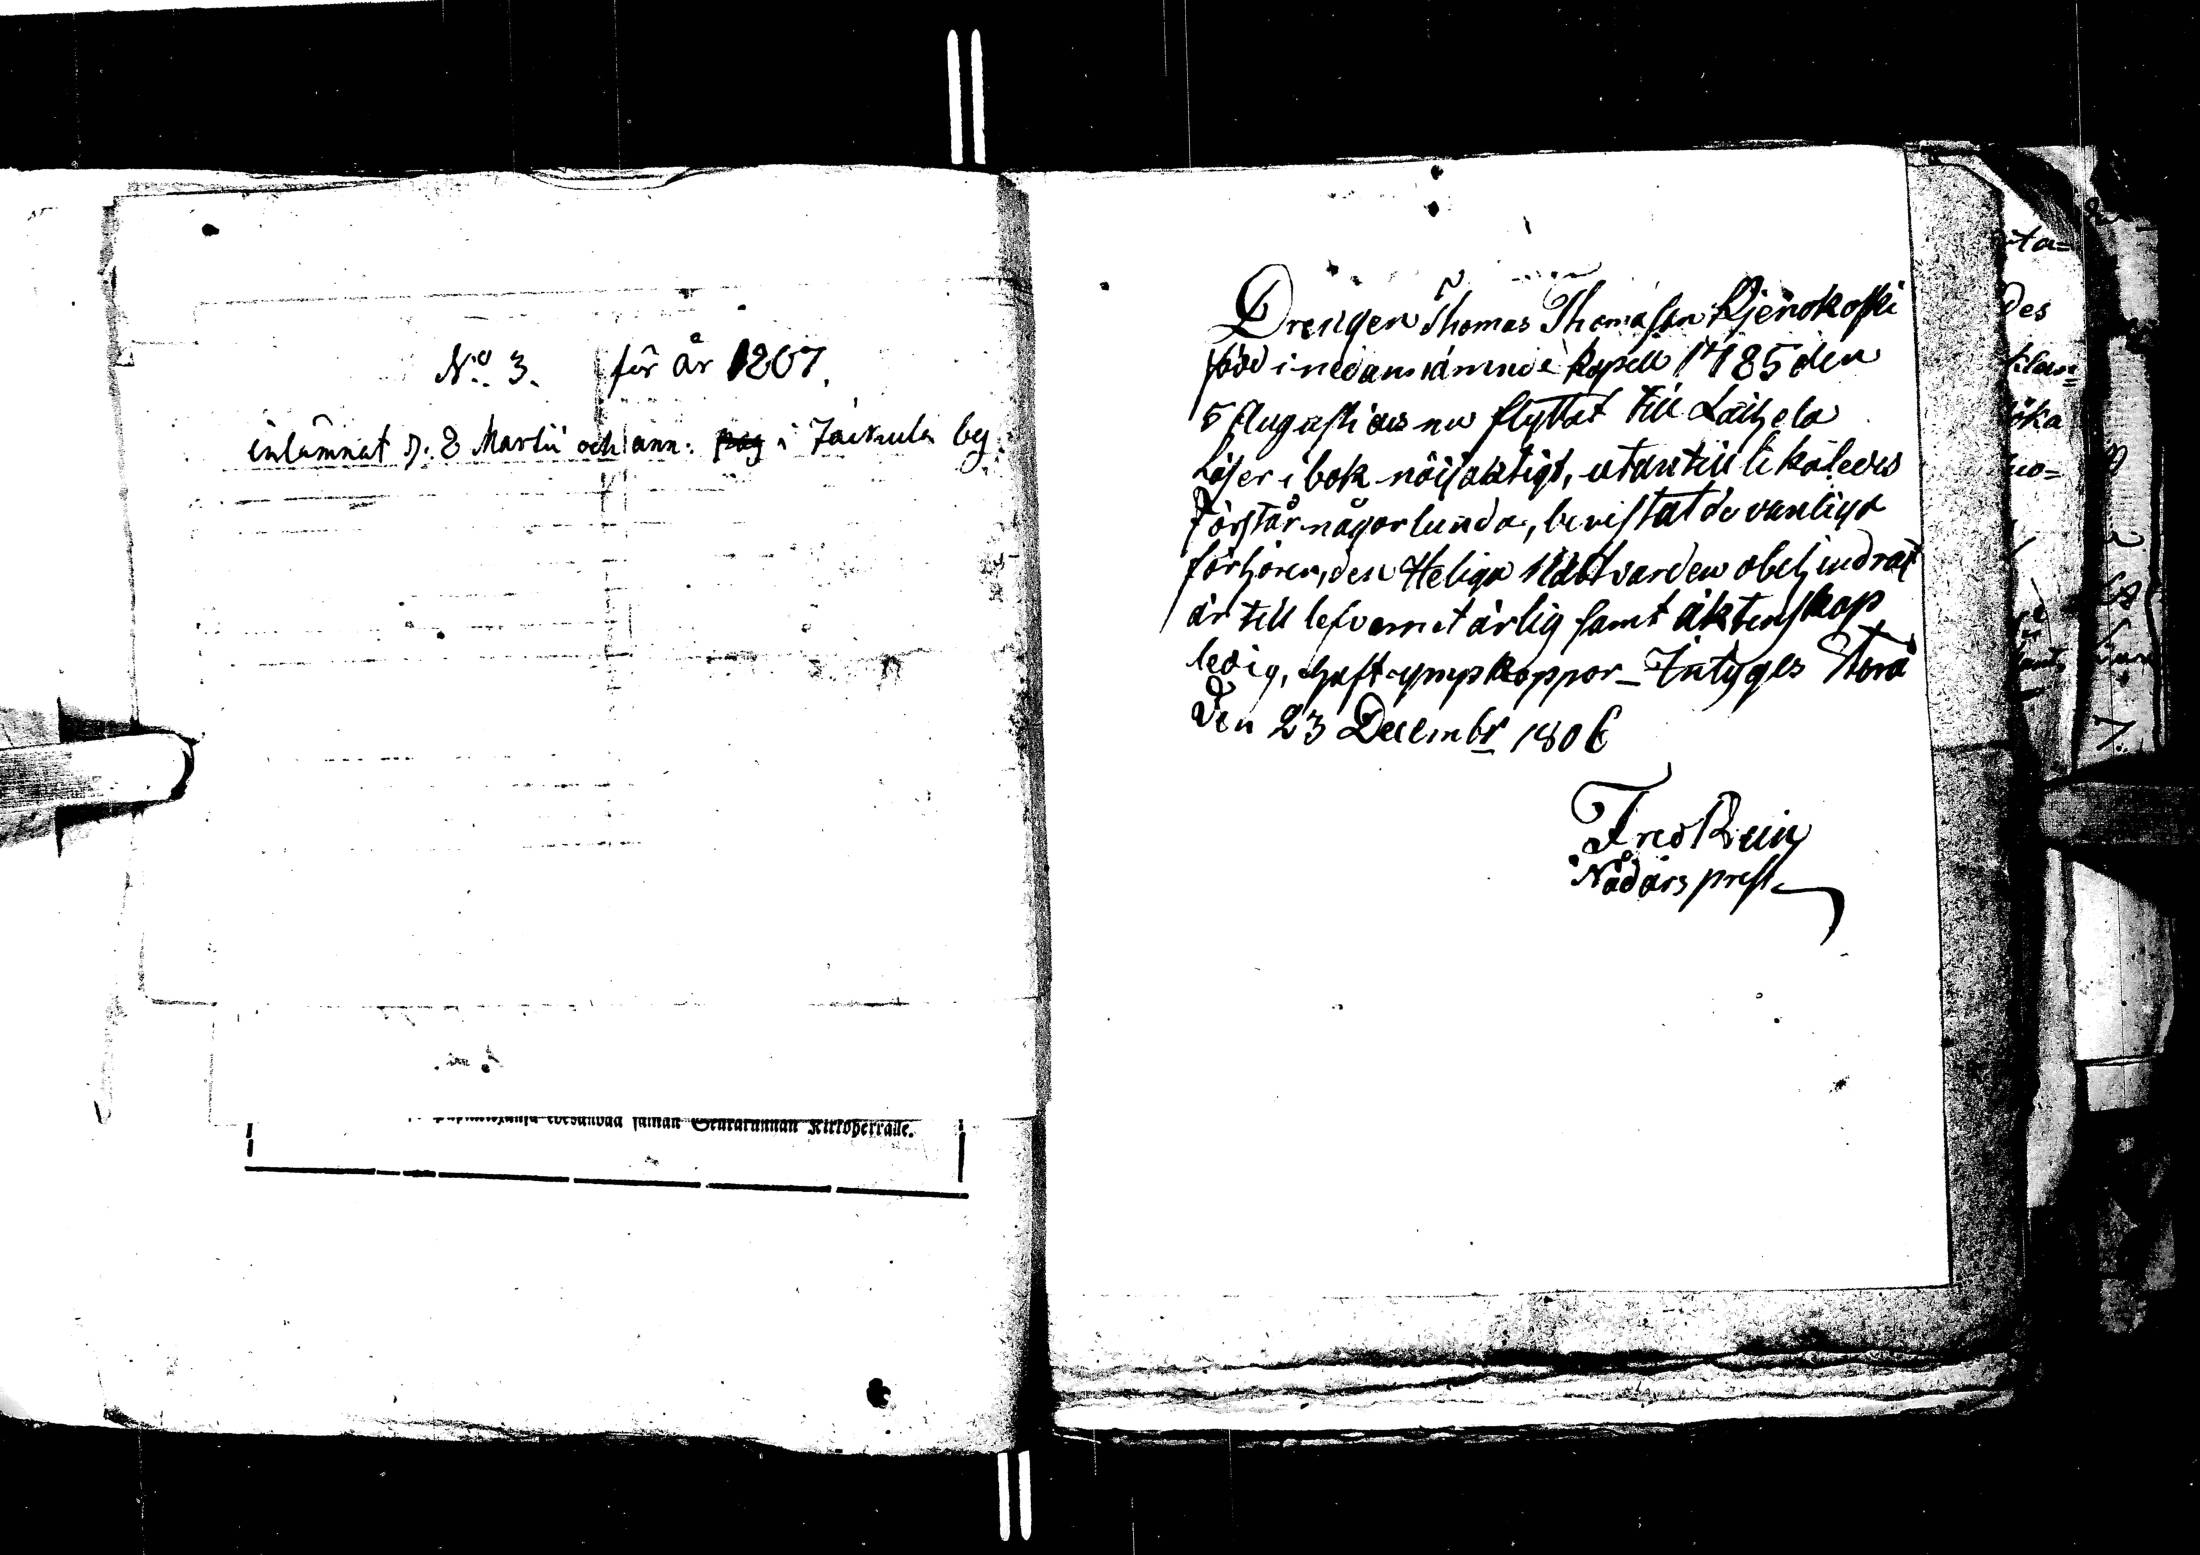 No. 3. för år 1807.
inlämnat d. 8 Martii och ann: i Jakkula by
saman Seurakunnan Kirkoherralle.
Drengen Thomas Thomasson Kjenokoski
född i nedannämnde kapell 1785 den
5 Augusti har nu flyttat till Laihela
Läser i bok nöijaktigt, utantill likaledes
förstår någorlunda, bevistat de vanliga
förhören, den Heliga Nattvarden obehindrat
är till lefvernet ärlig samt äktenskap
ledig, haft ympkoppor _ Intyges Storå
den 23 Decembr 1806
Fred Rein
Nådårs prest